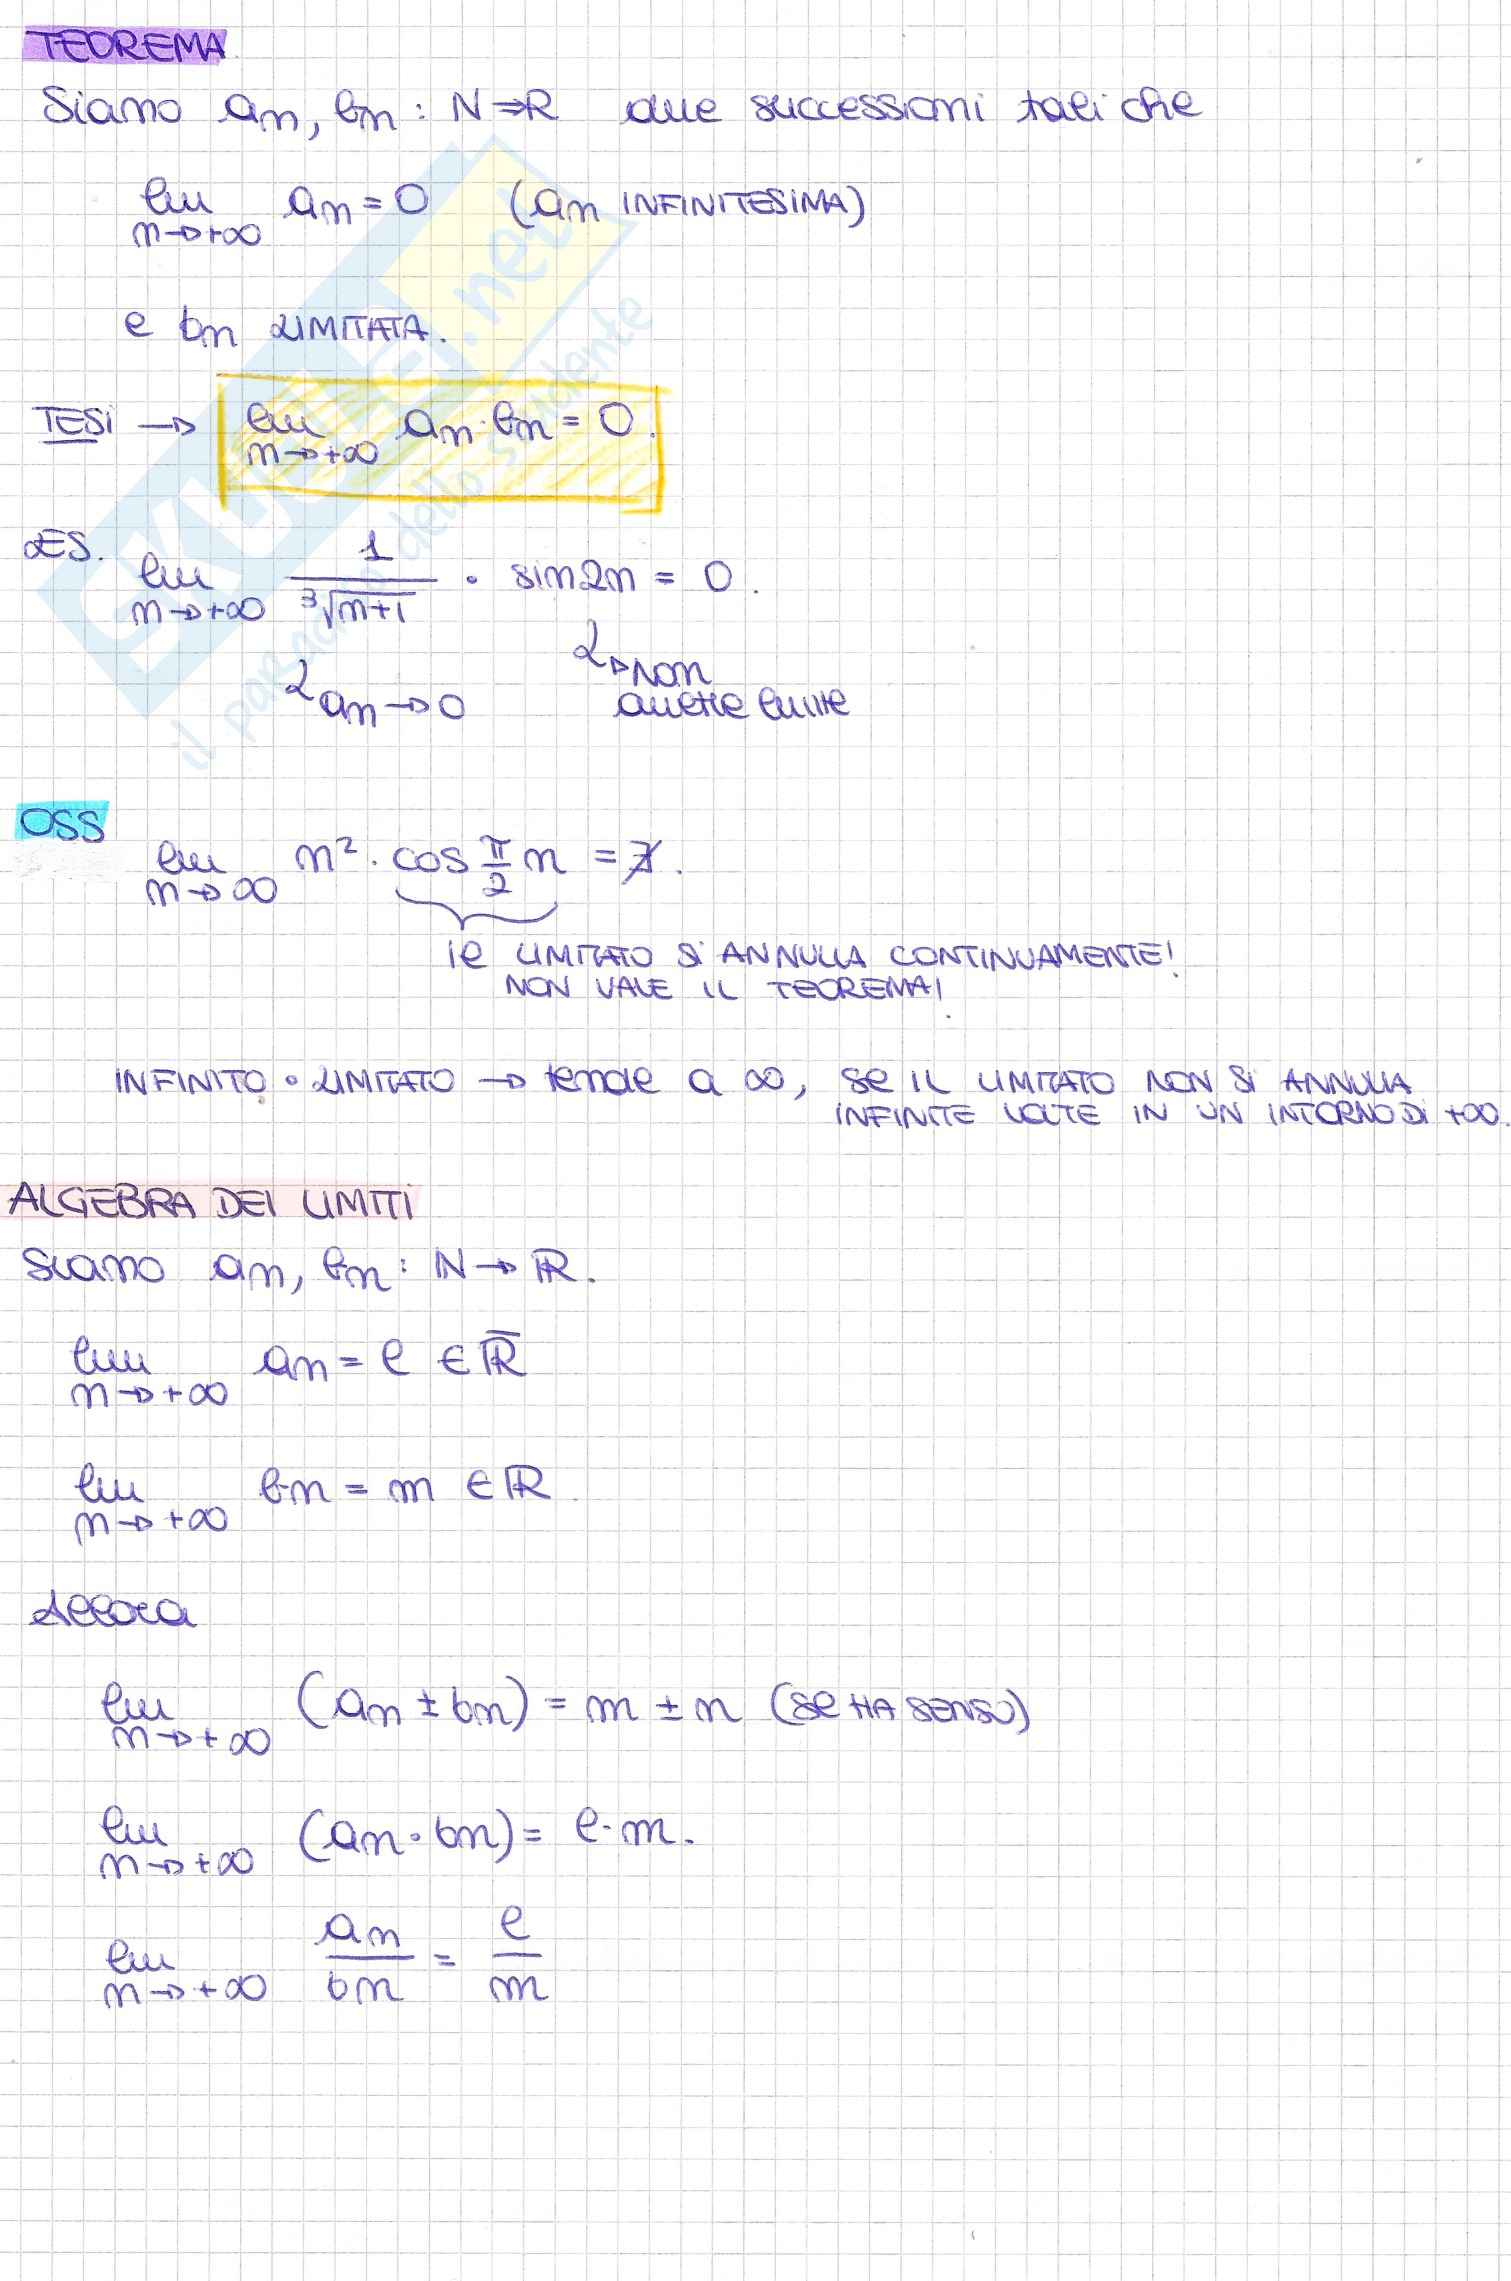 TEOREMA
Siano an, bn : N⇒R due successioni tali che
lim an = 0 (an INFINITESIMA)
n→+∞
e bn LIMITATA.
TESI → lim an·bn = 0.
n→+∞
ES. lim 1/³√n+1 · sin2n = 0.
n→+∞
↳ an→0
↳ non
amette limite
OSS
lim n² · cos π/2 n = ∄.
n→∞
il LIMITATO SI ANNULLA CONTINUAMENTE!
NON VALE IL TEOREMA!
INFINITO · LIMITATO → tende a ∞, se IL LIMITATO NON SI ANNULLA
INFINITE VOLTE IN UN INTORNO DI +∞.
ALGEBRA DEI LIMITI
Siano an, bn : N→R.
lim an = l ∈ R̅
n→+∞
lim bn = m ∈ R
n→+∞
Allora
lim (an ± bn) = m ± n (se HA SENSO)
n→+∞
lim (an · bn) = l·m.
n→+∞
lim an/bn = l/m
n→+∞
SKUOLA.net
il paradiso dello studente